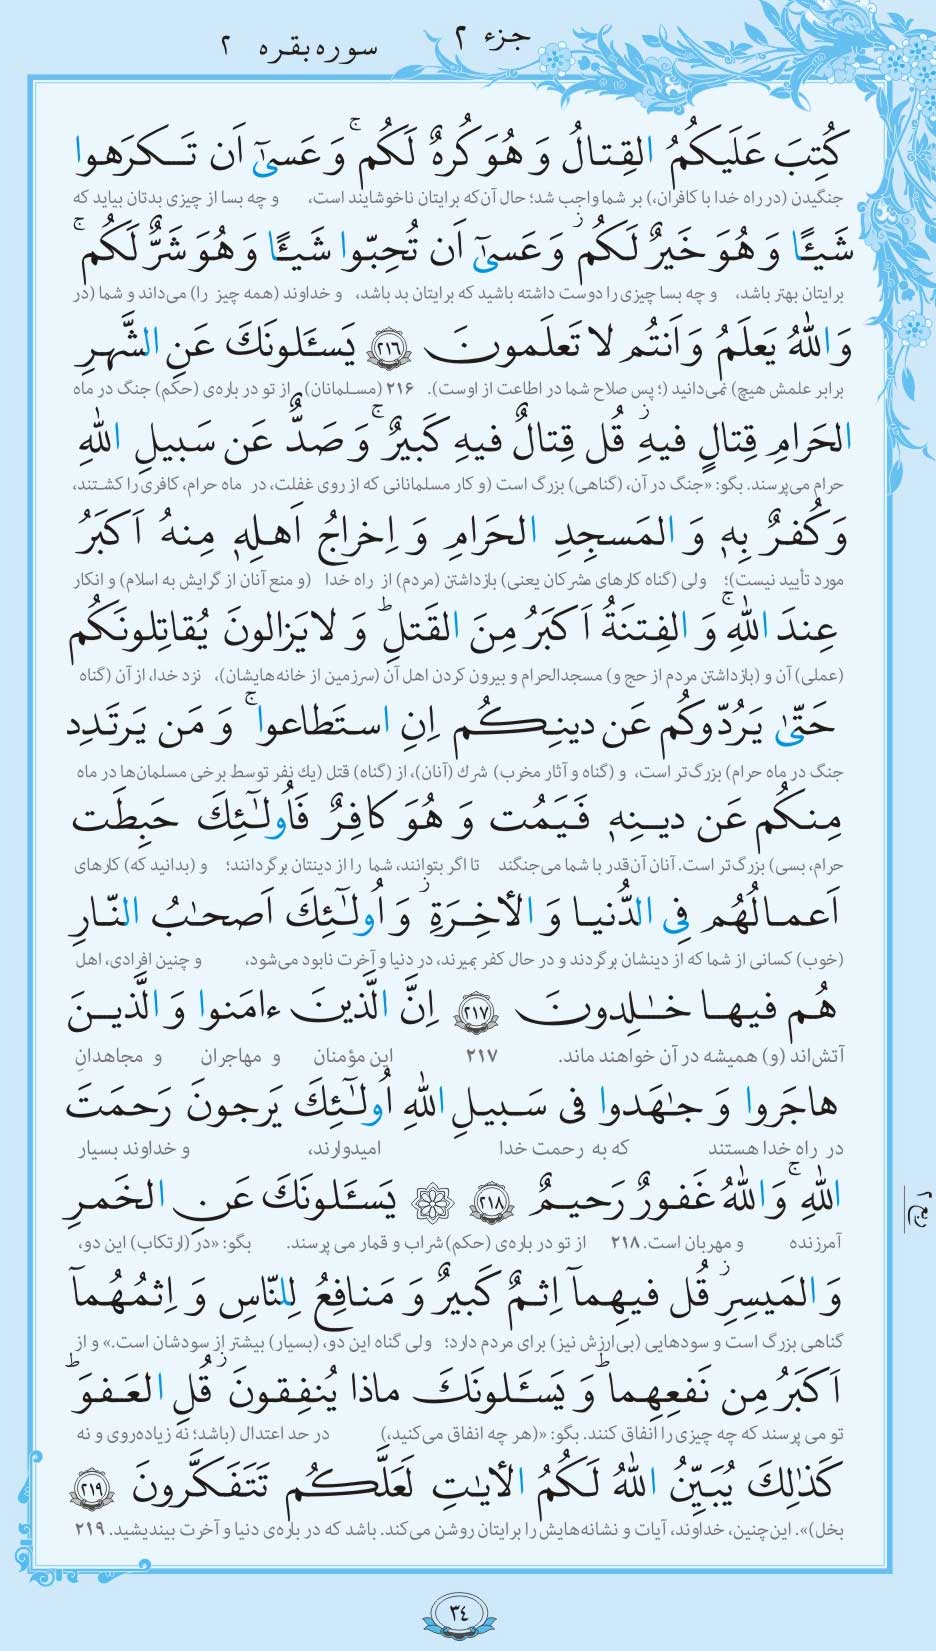 جزء ۲
سوره بقره ۲
كُتِبَ عَلَيكُمُ القِتالُ وَ هُوَ كُرهٌ لَكُم ۚ وَ عَسىٰٓ اَن تَكرَهوا
جنگیدن (در راه خدا با کافران،) بر شما واجب شد؛ حال آن‌که برایتان ناخوشایند است، و چه بسا از چیزی بدتان بیاید که
شَيـًٔا وَ هُوَ خَيرٌ لَكُم ۖ وَ عَسىٰٓ اَن تُحِبّوا شَيـًٔا وَ هُوَ شَرٌّ لَكُم ۚ
برایتان بهتر باشد، و چه بسا چیزی را دوست داشته باشید که برایتان بد باشد، و خداوند (همه چیز را) می‌داند و شما (در
وَ اللهُ يَعلَمُ وَ اَنتُم لا تَعلَمونَ ﴿٢١٦﴾ يَسـَٔلونَكَ عَنِ الشَّهرِ
برابر علمش هیچ) نمی‌دانید (؛ پس صلاح شما در اطاعت از اوست). ۲۱۶ (مسلمانان) از تو درباره‌ی (حکم) جنگ در ماه
الحَرامِ قِتالٍ فيهِ ۖ قُل قِتالٌ فيهِ كَبيرٌ ۚ وَ صَدٌّ عَن سَبيلِ اللهِ
حرام می‌پرسند. بگو: «جنگ در آن، (گناهی) بزرگ است (و کار مسلمانانی که از روی غفلت، در ماه حرام، کافری را کشتند،
وَ كُفرٌ بِهٖ وَ المَسجِدِ الحَرامِ وَ اِخراجُ اَهلِهٖ مِنهُ اَكبَرُ
مورد تأیید نیست)؛ ولی (گناه کارهای مشرکان یعنی) بازداشتن (مردم) از راه خدا (و منع آنان از گرایش به اسلام) و انکار
عِندَ اللهِ ۚ وَ الفِتنَةُ اَكبَرُ مِنَ القَتلِ ۗ وَ لا يَزالونَ يُقاتِلونَكُم
(عملی) آن و (بازداشتن مردم از حج و) مسجدالحرام و بیرون کردن اهل آن (سرزمین از خانه‌هایشان)، نزد خدا، از آن (گناه
حَتّىٰ يَرُدّوكُم عَن دينِكُم اِنِ استَطاعوا ۚ وَ مَن يَرتَدِد
جنگ در ماه حرام) بزرگ‌تر است، و (گناه و آثار مخرب) شرك (آنان)، از (گناه) قتل (یك نفر توسط برخی مسلمان‌ها در ماه
مِنكُم عَن دينِهٖ فَيَمُت وَ هُوَ كافِرٌ فَاُولٰٓئِكَ حَبِطَت
حرام، بسی) بزرگ‌تر است. آنان آن‌قدر با شما می‌جنگند تا اگر بتوانند، شما را از دینتان برگردانند؛ و (بدانید که) کارهای
اَعمالُهُم فِي الدُّنيا وَ الأخِرَةِ ۖ وَ اُولٰٓئِكَ اَصحٰبُ النّارِ
(خوب) کسانی از شما که از دینشان برگردند و در حال کفر بمیرند، در دنیا و آخرت نابود می‌شود، و چنین افرادی، اهل
هُم فيها خٰلِدونَ ﴿٢١٧﴾ اِنَّ الَّذينَ ءامَنوا وَ الَّذينَ
آتش‌اند (و) همیشه در آن خواهند ماند. ۲۱۷ این مؤمنان و مهاجران و مجاهدانِ
هاجَروا وَ جٰهَدوا في سَبيلِ اللهِ اُولٰٓئِكَ يَرجونَ رَحمَتَ
در راه خدا هستند که به رحمت خدا امیدوارند، و خداوند بسیار
اللهِ ۚ وَ اللهُ غَفورٌ رَحيمٌ ﴿٢١٨﴾ يَسـَٔلونَكَ عَنِ الخَمرِ
آمرزنده و مهربان است. ۲۱۸ از تو درباره‌ی (حکم) شراب و قمار می پرسند. بگو: «در (ارتکاب) این دو،
وَ المَيسِرِ ۖ قُل فيهِمآ اِثمٌ كَبيرٌ وَ مَنافِعُ لِلنّاسِ وَ اِثمُهُمآ
گناهی بزرگ است و سودهایی (بی‌ارزش نیز) برای مردم دارد؛ ولی گناه این دو، (بسیار) بیشتر از سودشان است.» و از
اَكبَرُ مِن نَفعِهِما ۗ وَ يَسـَٔلونَكَ ماذا يُنفِقونَ ۖ قُلِ العَفوَ ۗ
تو می پرسند که چه چیزی را انفاق کنند. بگو: «(هر چه انفاق می‌کنید،) در حد اعتدال (باشد؛ نه زیاده‌روی و نه
كَذٰلِكَ يُبَيِّنُ اللهُ لَكُمُ الأيٰتِ لَعَلَّكُم تَتَفَكَّرونَ ﴿٢١٩﴾
بخل)». این‌چنین، خداوند، آیات و نشانه‌هایش را برایتان روشن می‌کند. باشد که درباره‌ی دنیا و آخرت بیندیشید. ۲۱۹
٣٤